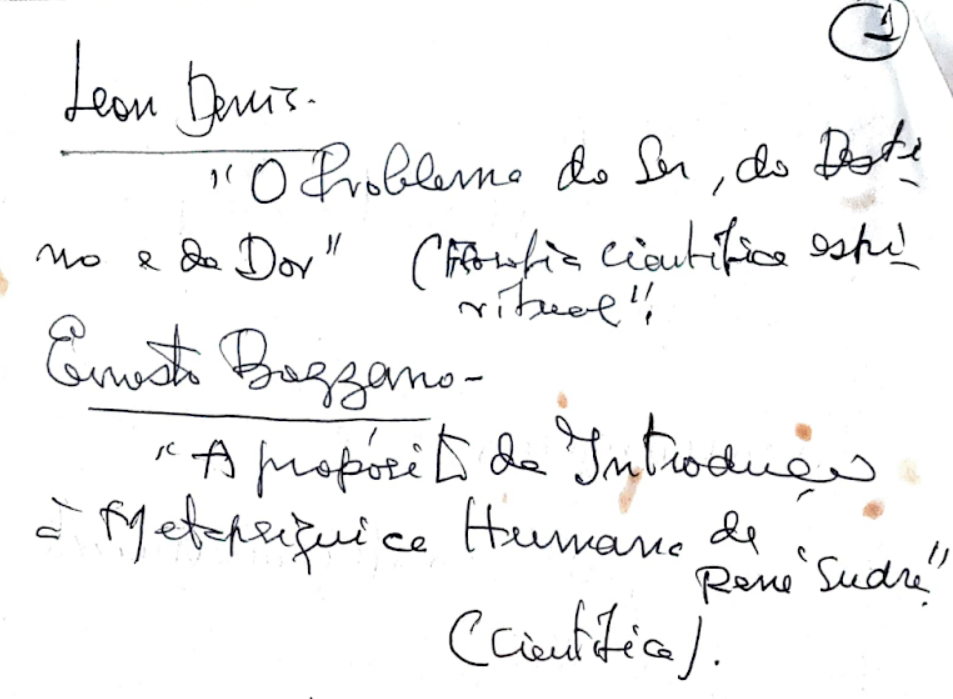 1
Leon Denis.
"O Problema do Ser, do Desti-
no e da Dor" (Filosofia cientifica espi-
ritual"!
Ernesto Bozzano-
"A propósito da Introdução
à Metapsiquica Humana de
René Sudre"
(Cientifica).